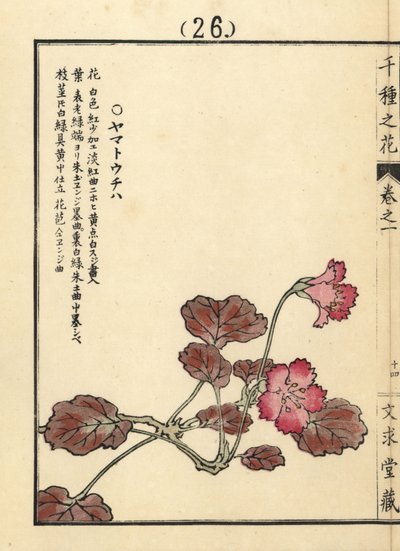 (26.)
千種之花
巻之一
十四
文求堂藏
〇ヤマトウチハ
花 白色紅少加エ淡紅曲ニホヒ黄点白スジ書入
葉 表老緑端ヨリ朱土エンジ墨曲裏白緑朱土曲中墨シベ
枝茎氏白緑具黄中仕立花芭仝エンジ曲